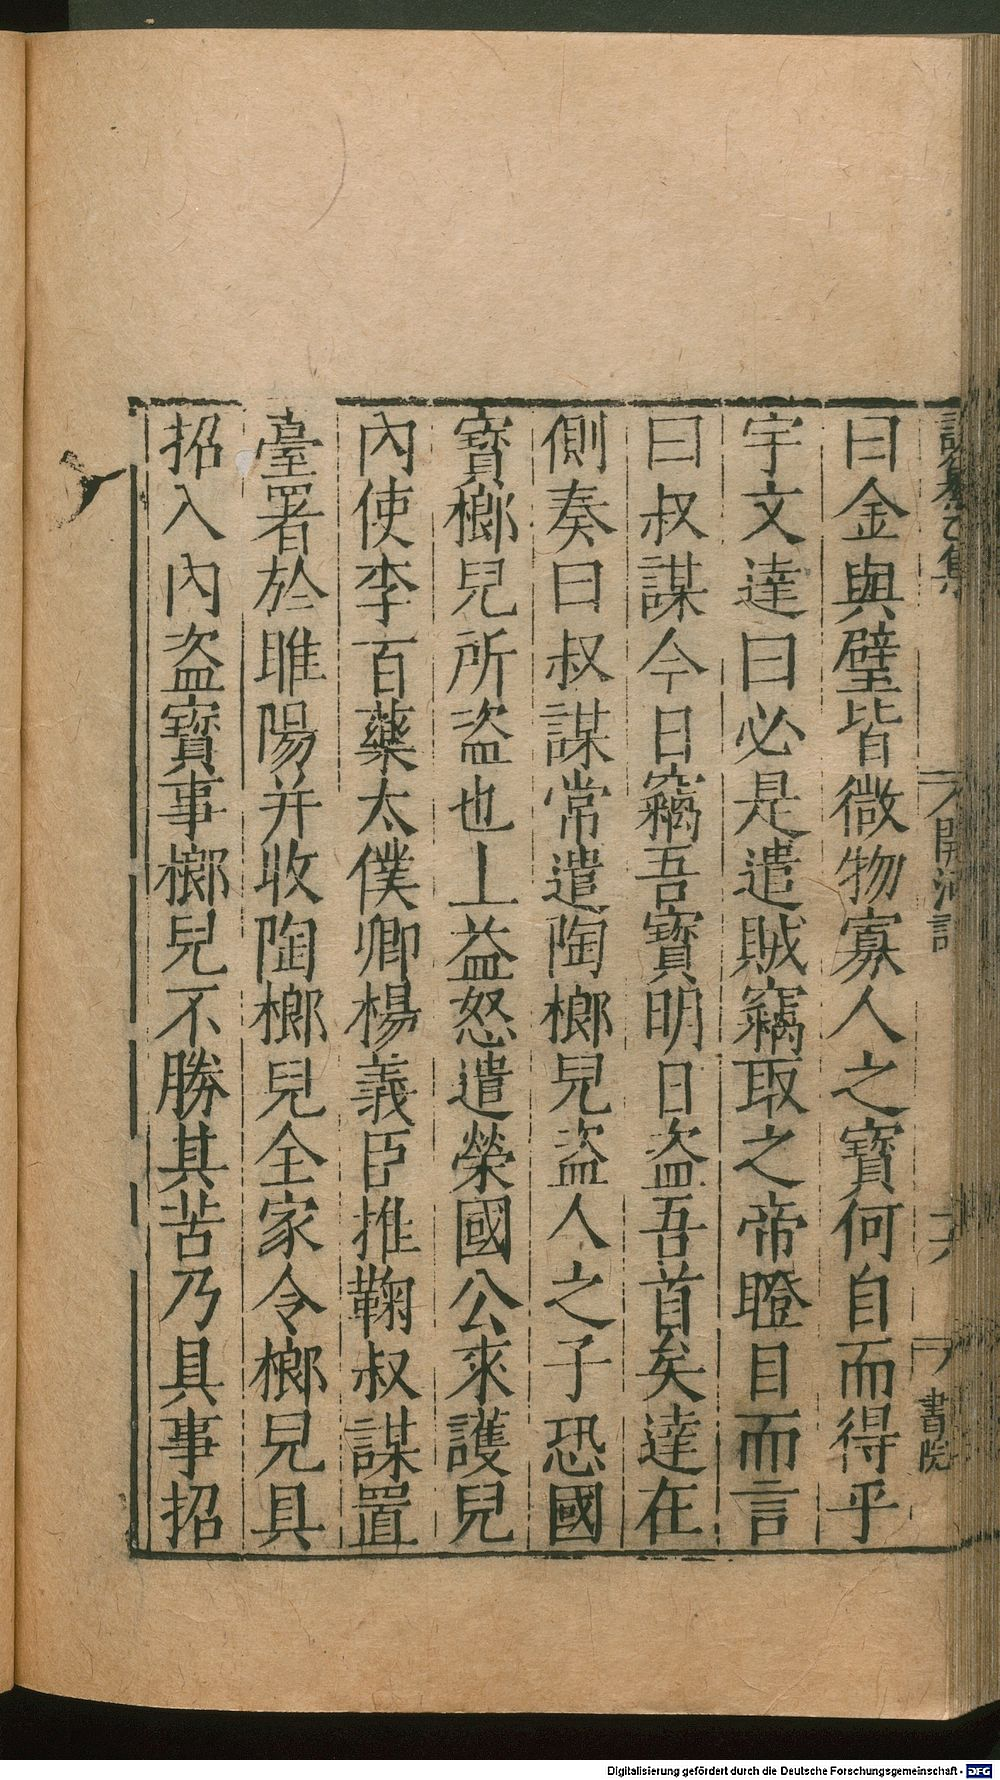 說纂乙集
開河記
十六
書院
曰金與璧皆微物寡人之寶何自而得乎
宇文達曰必是遣賊竊取之帝瞪目而言
曰叔謀今日竊吾寶明日盜吾首矣達在
側奏曰叔謀常遣陶榔兒盜人之子恐國
寶榔兒所盜也上益怒遣榮國公來護兒
內使李百藥太僕卿楊義臣推鞠叔謀置
臺署於睢陽并收陶榔兒全家令榔兒具
招入內盜寶事榔兒不勝其苦乃具事招
Digitalisierung gefördert durch die Deutsche Forschungsgemeinschaft - DFG